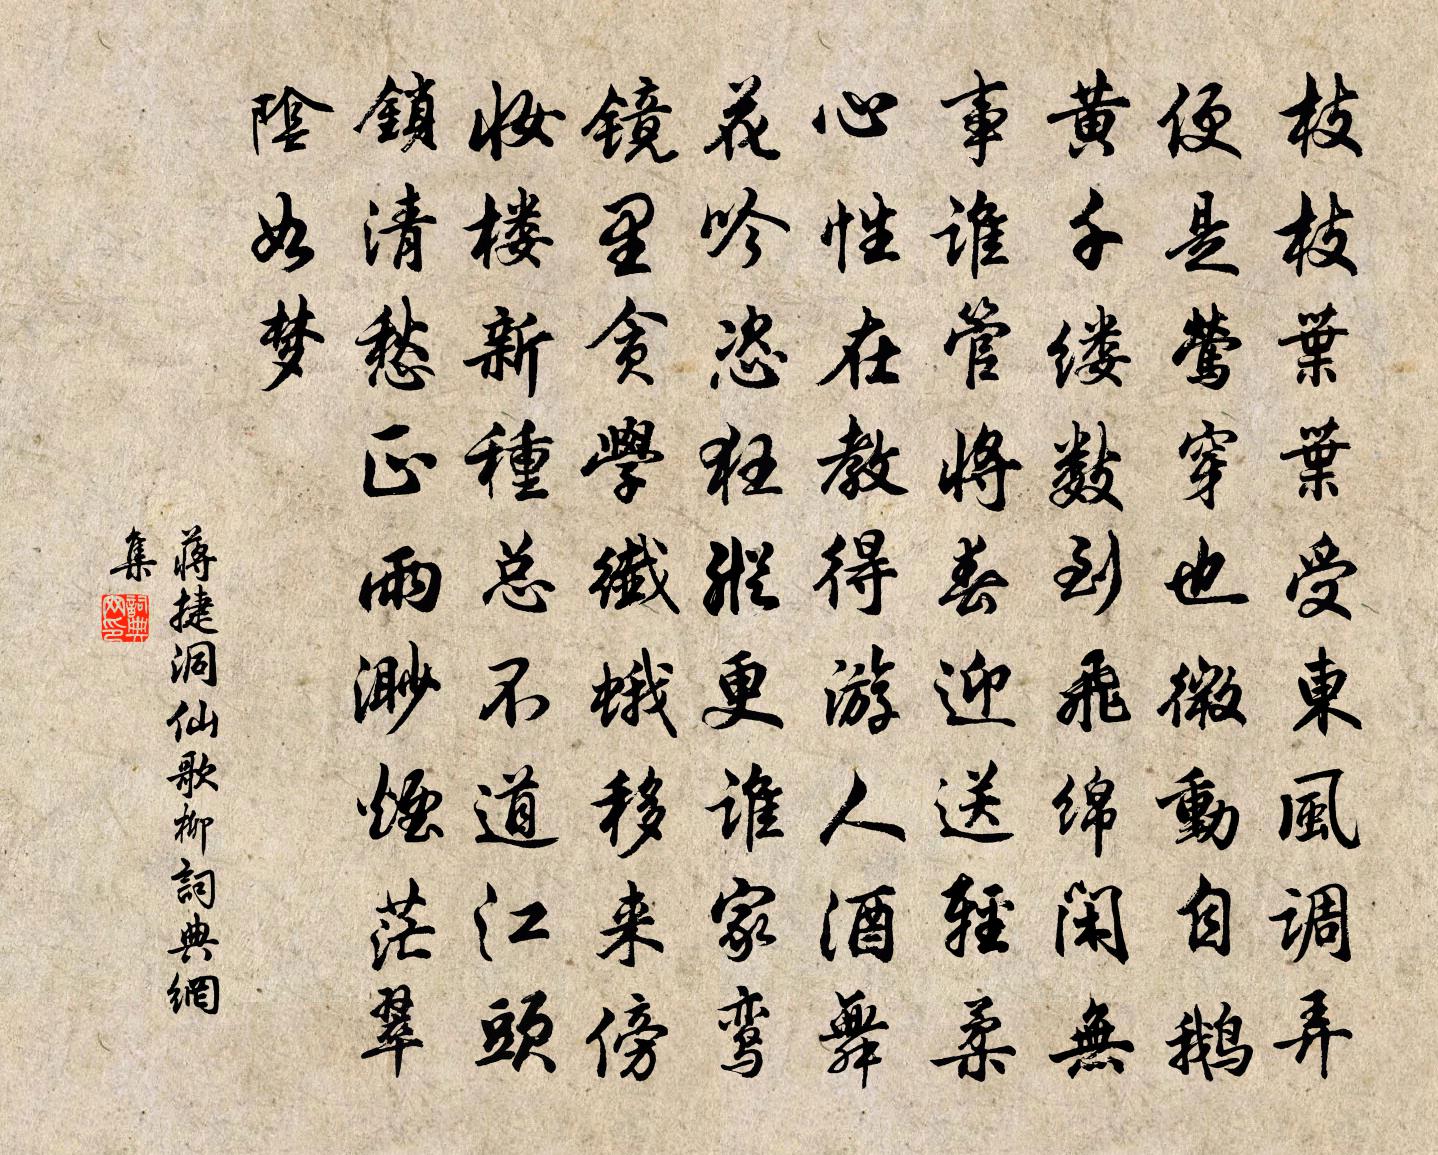 枝枝葉葉受東風調弄
便是鶯穿也微動自鹅
黄千缕數到飛綿闲無
事誰管將春迎送輕柔
心性在教得游人酒舞
花吟恣狂縱更誰家鸾
镜里贪學纖蛾移来傍
妝楼新種总不道江頭
鎖清愁正雨渺煙茫翠
陰如梦
蒋捷洞仙歌柳詞典網
集
詞典網印